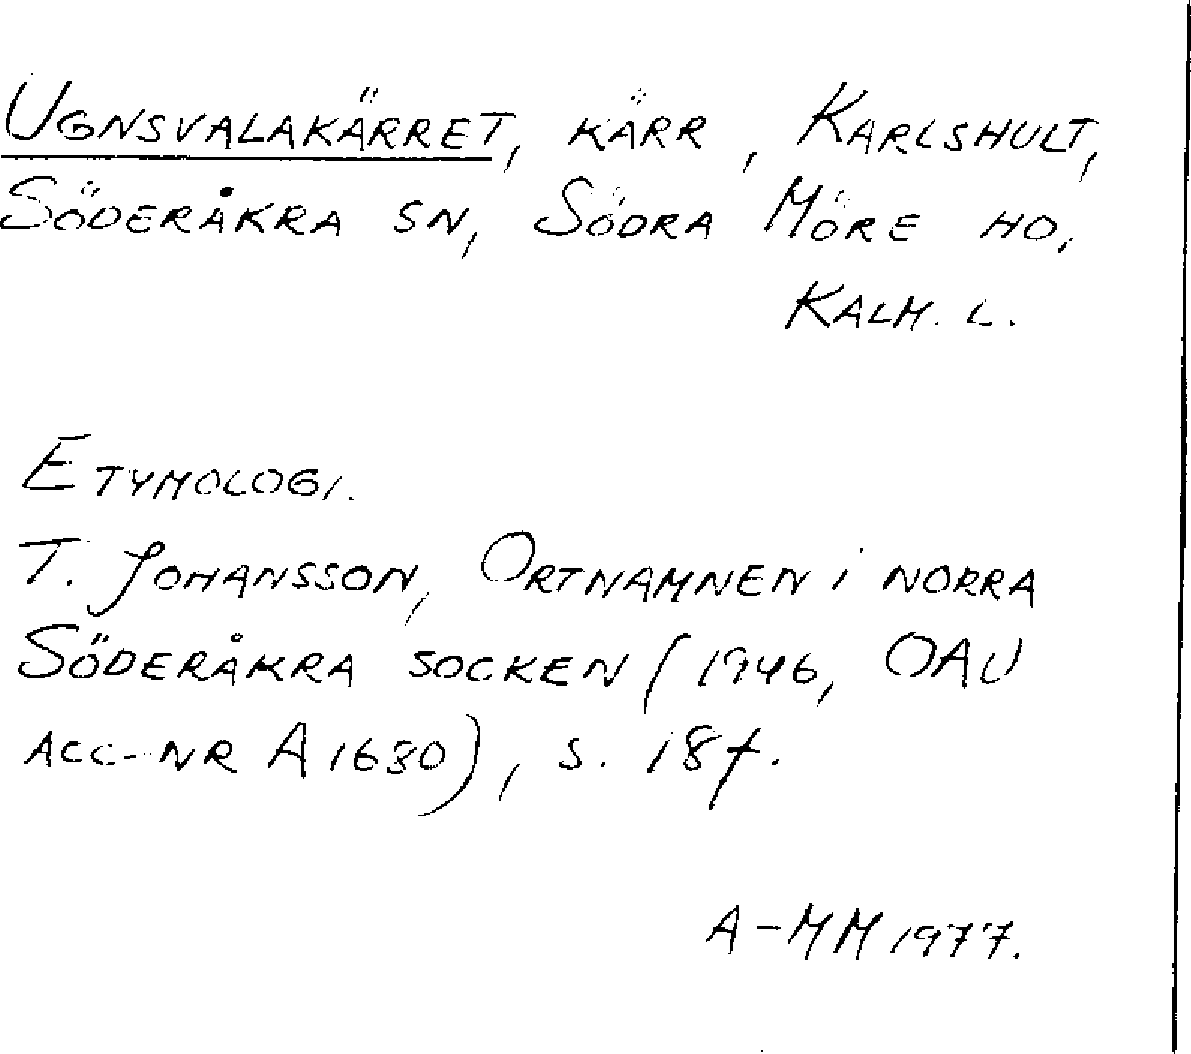 UGNSVALAKÄRRET, KÄRR, KARLSHULT,
SÖDERÅKRA SN, SÖDRA MÖRE HD,
KALM. L.
ETYMOLOGI.
T. JOHANSSON, ORTNAMNEN I NORRA
SÖDERÅKRA SOCKEN (1946, OAU
ACC-NR A 1630), S. 18f.
A-MM 1977.